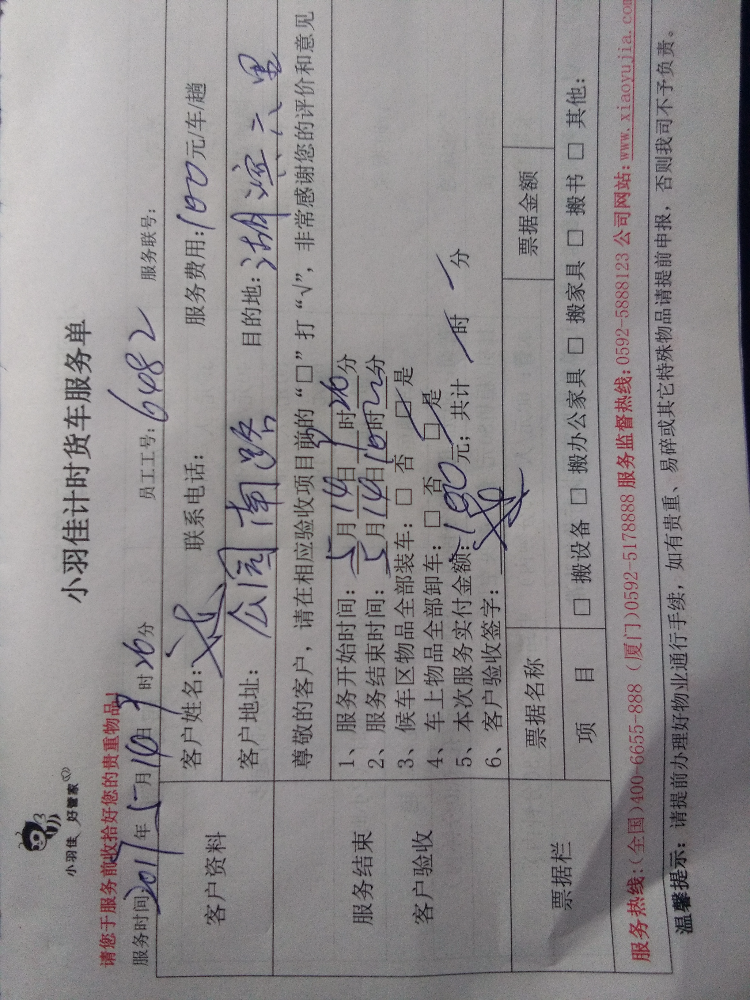 小羽佳 好管家
小羽佳计时货车服务单
请您于服务前收拾好您的贵重物品!
服务时间2017年5月14日9时26分 员工工号:6482 服务联号:
客户资料
客户姓名: 联系电话: 服务费用:100元/车/趟
客户地址:公园南路 目的地:湖滨六里
尊敬的客户,请在相应验收项目前的“□”打“√”,非常感谢您的评价和意见
服务结束
客户验收
1、服务开始时间:5月14日9时26分
2、服务结束时间:5月14日10时2分
3、候车区物品全部装车:□否 □是
4、车上物品全部卸车:□否 □是
5、本次服务实付金额:100元;共计 时 分
6、客户验收签字:
票据栏
票据名称 票据金额
项 目 □ 搬设备 □ 搬办公家具 □ 搬家具 □ 搬书 □ 其他:
服务热线:(全国)400-6655-888 (厦门)0592-5178888 服务监督热线:0592-5888123 公司网站:www.xiaoyujia.com
温馨提示:请提前办理好物业通行手续,如有贵重、易碎或其它特殊物品请提前申报,否则我司不予负责。